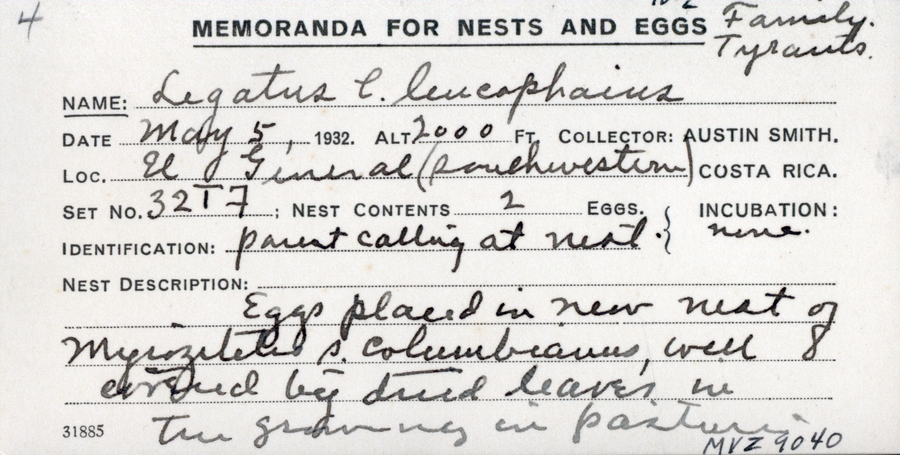 4
MEMORANDA FOR NESTS AND EGGS Family.
Tyrants.
NAME: Legatus l. leucophaius
DATE May 5, 1932. ALT 2000 FT. COLLECTOR: AUSTIN SMITH.
LOC. El General (southwestern) COSTA RICA.
SET NO. 32T7; NEST CONTENTS 2 EGGS. { INCUBATION:
IDENTIFICATION: parent calling at nest. none.
NEST DESCRIPTION:
Eggs placed in new nest of
Myiozetetes s. columbianus, well 8
covered by dried leaves in
growing in pasture
31885
MVZ 9040